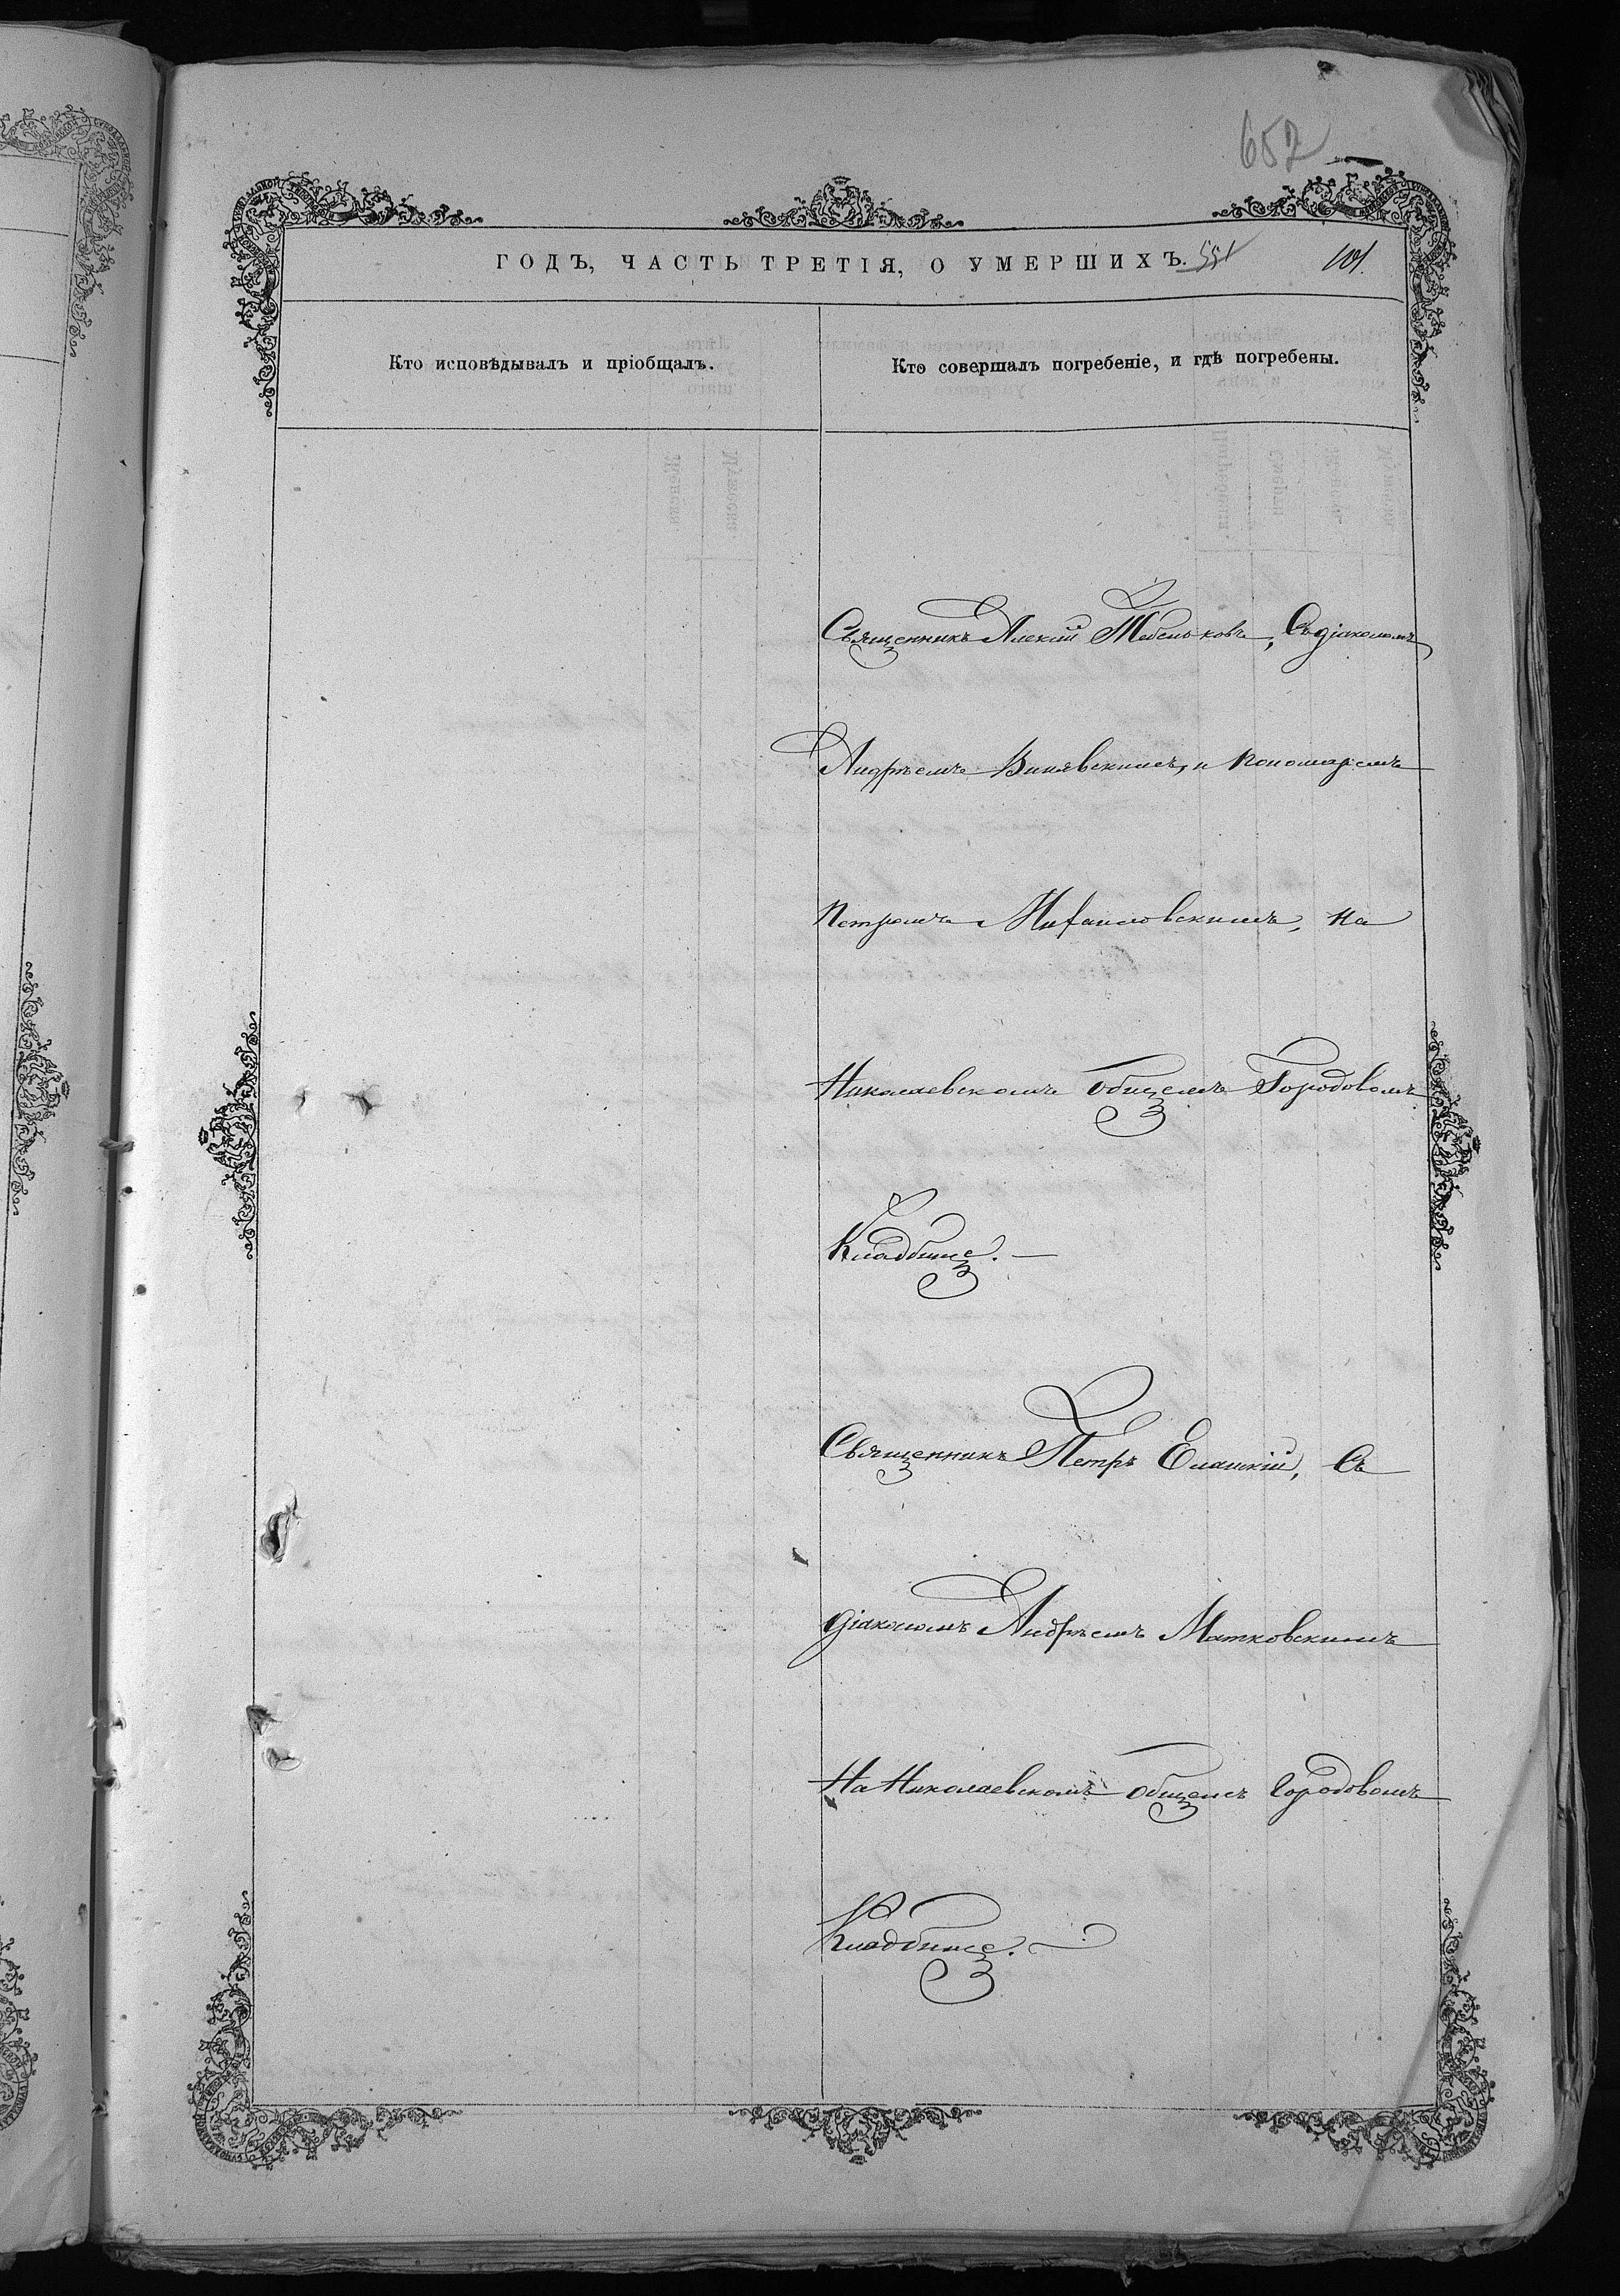 652
ГОДЪ, ЧАСТЬ ТРЕТІЯ, О УМЕРШИХЪ. 551 101.
Кто исповѣдывалъ и пріобщалъ.
Кто совершалъ погребеніе, и гдѣ погребены.
Священникъ Алексій Тебеньковъ, Съ діакономъ
Андреемъ и Пономаремъ
Петромъ Михайловскимъ, на
Николаевскомъ общемъ Городовомъ
Кладбище. —
Священникъ Петръ Еланскій, Съ
діакономъ Андреемъ Матковскимъ
На Николаевскомъ общемъ Городовомъ
Кладбище. —